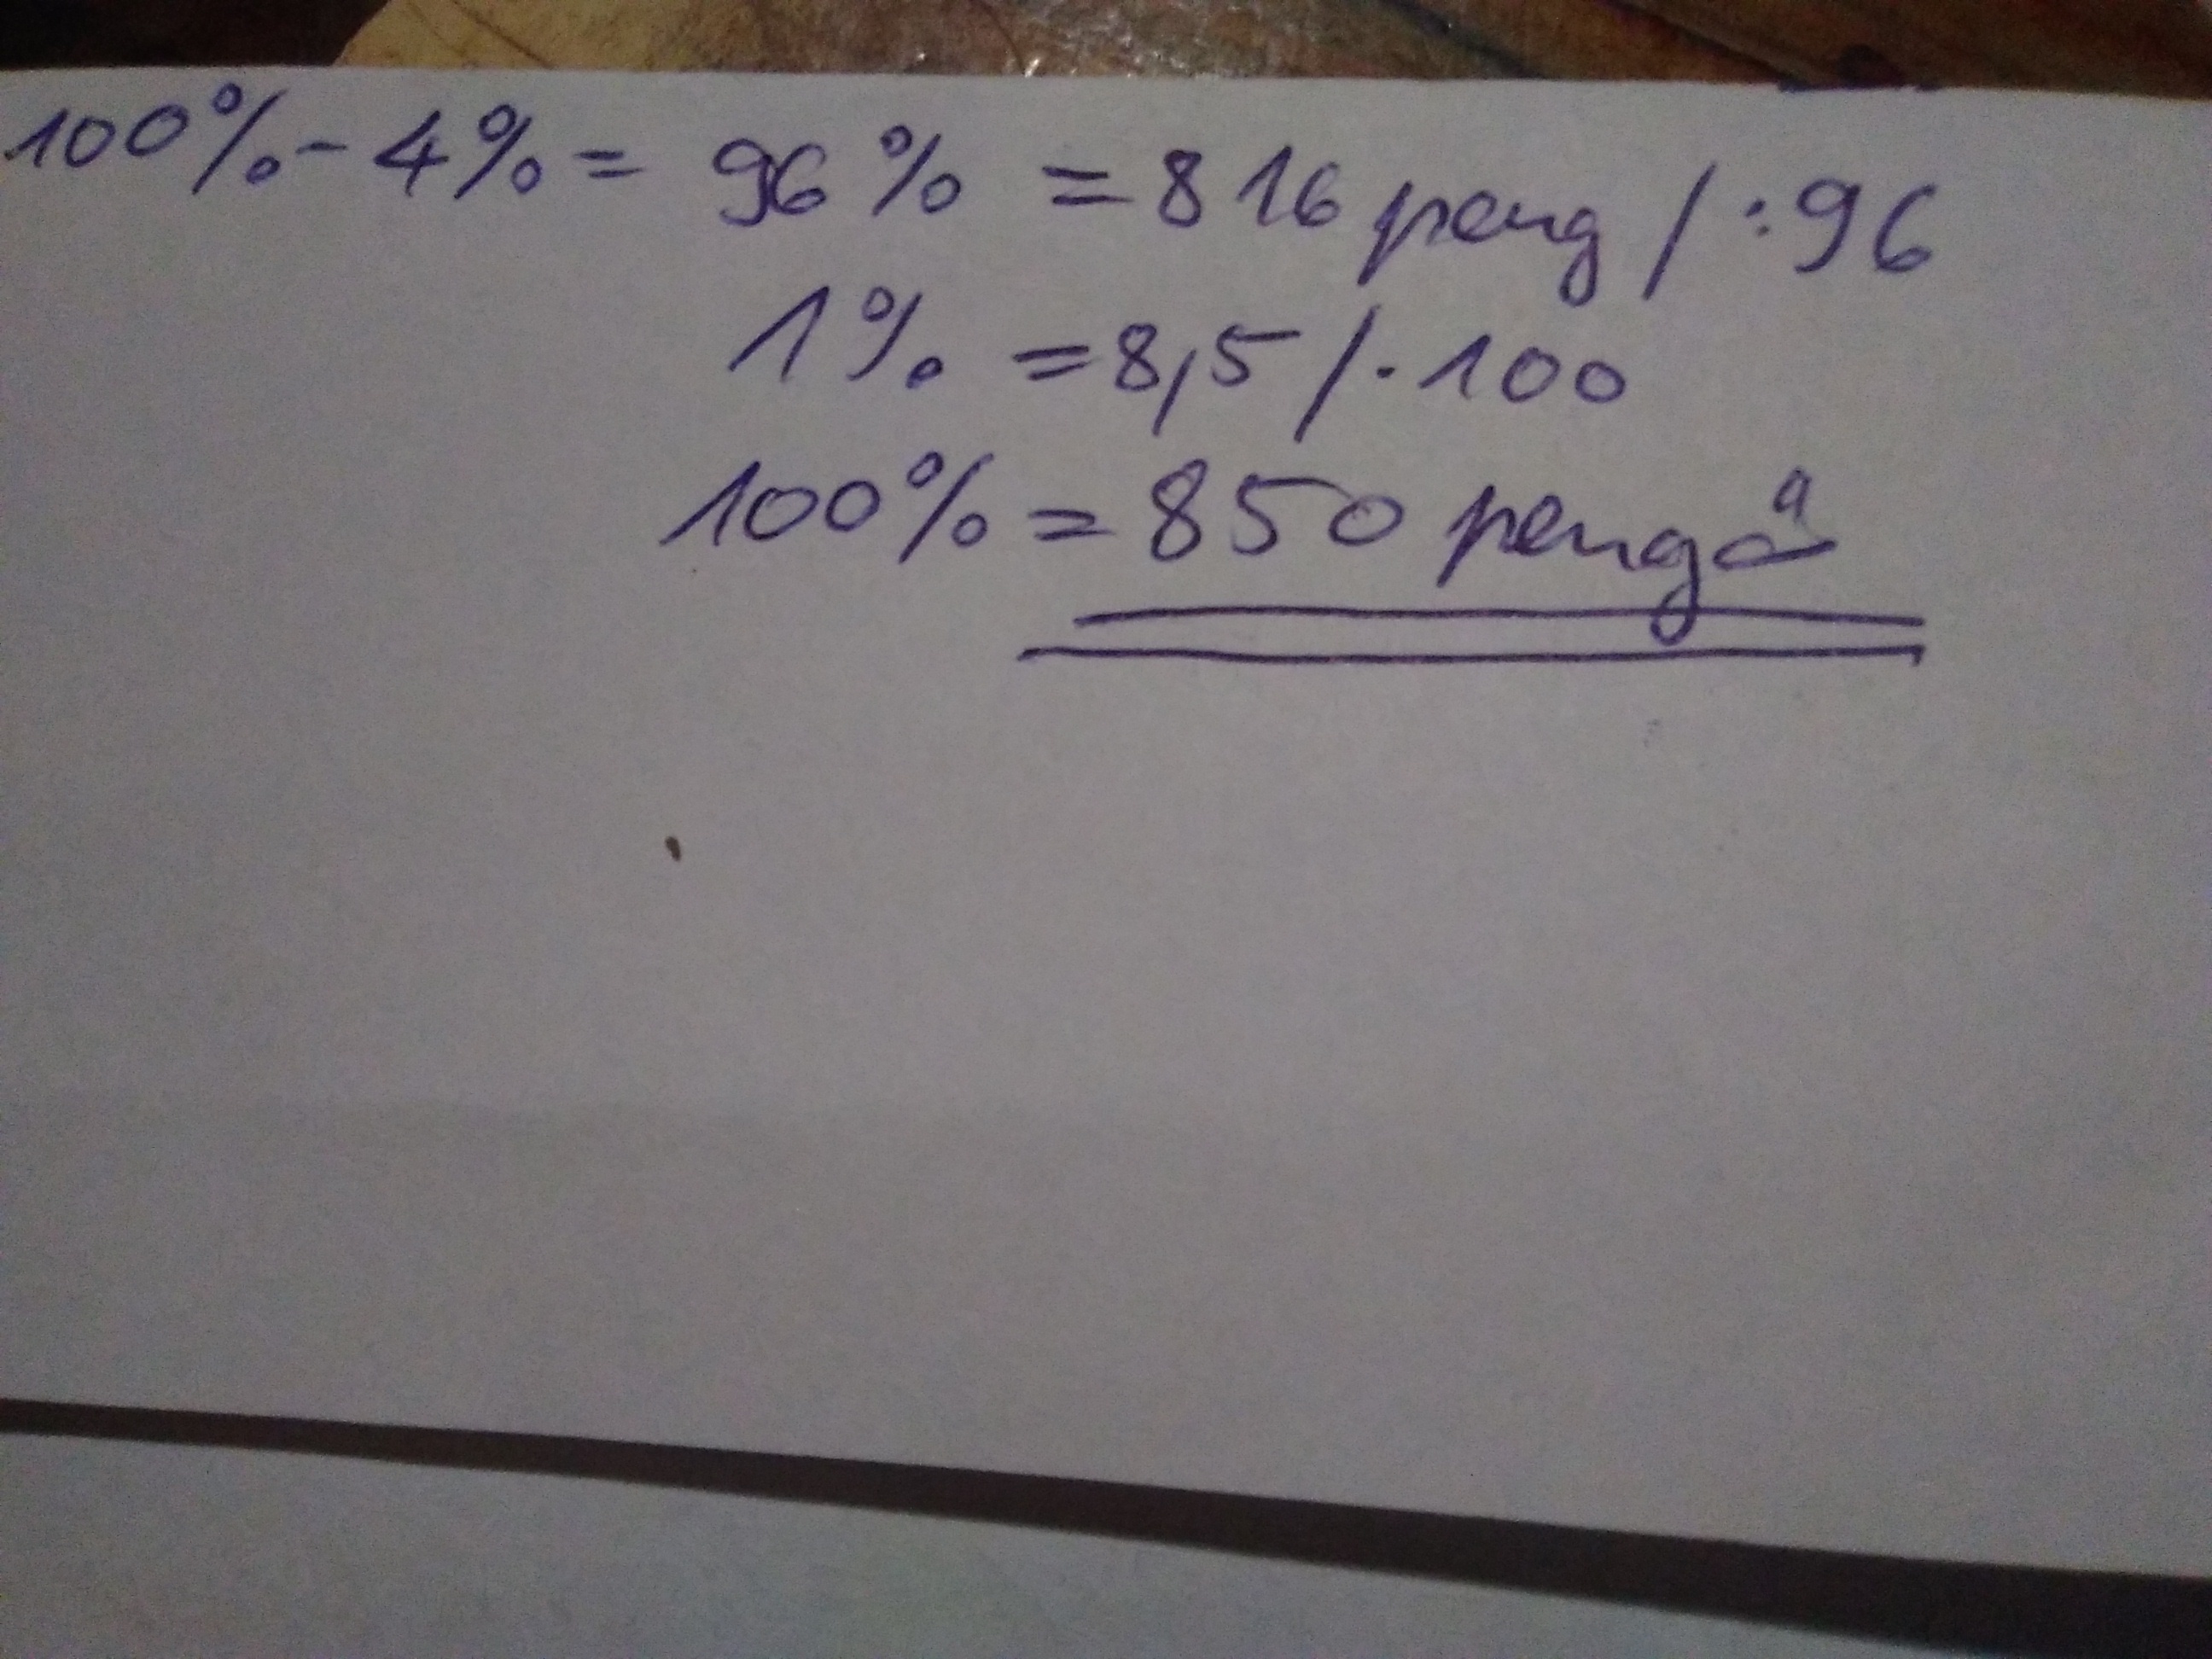 100% - 4% = 96% = 816 peng / :96
1% = 8,5 / · 100
100% = 850 pengő